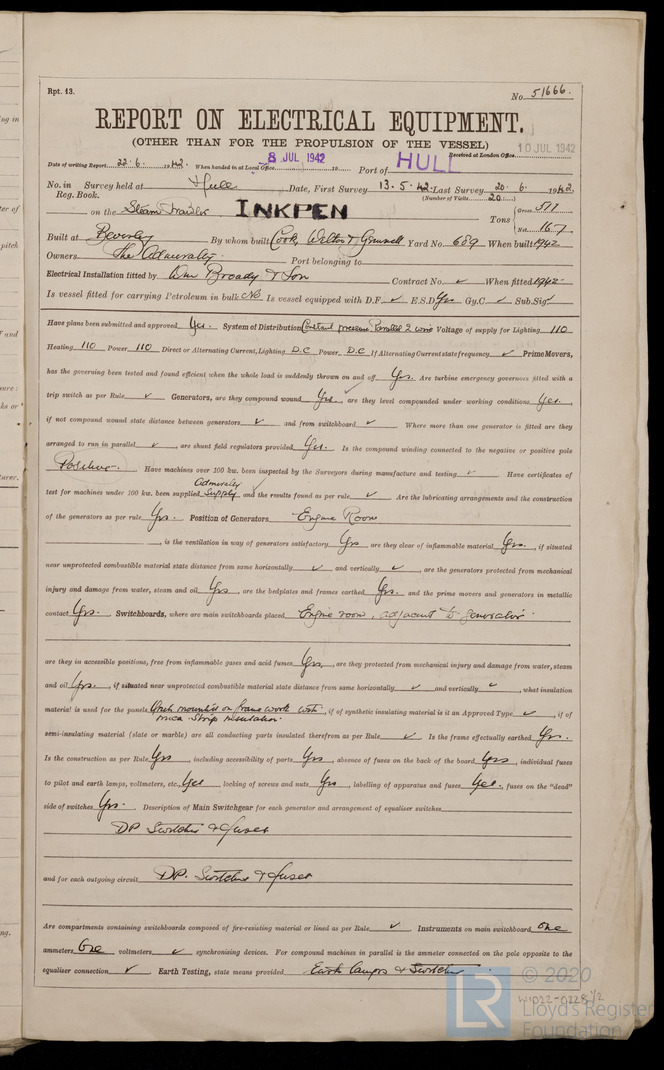 Rpt. 13.
No. 51666.
REPORT ON ELECTRICAL EQUIPMENT.
(OTHER THAN FOR THE PROPULSION OF THE VESSEL)
10 JUL 1942
Date of writing Report 22.6. 1942. When handed in at Local Office 8 JUL 1942 19 Port of HULL Received at London Office
No. in Survey held at Hull Date, First Survey 13.5.42 Last Survey 20.6. 1942.
Reg. Book. (Number of Visits 20)
on the Steam Trawler INKPEN Tons Gross 511 Net 167
Built at Beverley By whom built Cook, Welton & Gemmell Yard No. 689 When built 1942
Owners The Admiralty Port belonging to
Electrical Installation fitted by Wm Broady & Son Contract No. ✓ When fitted 1942
Is vessel fitted for carrying Petroleum in bulk No Is vessel equipped with D.F. ✓ E.S.D. Yes Gy.C. ✓ Sub.Sig. ✓
Have plans been submitted and approved Yes. System of Distribution Constant pressure Parallel 2 wire Voltage of supply for Lighting 110
Heating 110 Power 110 Direct or Alternating Current, Lighting D.C Power D.C If Alternating Current state frequency ✓ Prime Movers,
has the governing been tested and found efficient when the whole load is suddenly thrown on and off Yes. Are turbine emergency governors fitted with a
trip switch as per Rule ✓ Generators, are they compound wound Yes, are they level compounded under working conditions Yes,
if not compound wound state distance between generators ✓ and from switchboard ✓ Where more than one generator is fitted are they
arranged to run in parallel ✓, are shunt field regulators provided Yes. Is the compound winding connected to the negative or positive pole
Positive. Have machines over 100 kw. been inspected by the Surveyors during manufacture and testing ✓ Have certificates of
test for machines under 100 kw. been supplied Admiralty Supply and the results found as per rule ✓ Are the lubricating arrangements and the construction
of the generators as per rule Yes. Position of Generators Engine Room
, is the ventilation in way of generators satisfactory Yes are they clear of inflammable material Yes, if situated
near unprotected combustible material state distance from same horizontally ✓ and vertically ✓, are the generators protected from mechanical
injury and damage from water, steam and oil Yes, are the bedplates and frames earthed Yes. and the prime movers and generators in metallic
contact Yes. Switchboards, where are main switchboards placed Engine room, adjacent to generator.
are they in accessible positions, free from inflammable gases and acid fumes Yes, are they protected from mechanical injury and damage from water, steam
and oil Yes, if situated near unprotected combustible material state distance from same horizontally ✓ and vertically ✓, what insulation
material is used for the panels Units mounted on frame work with mica strip insulation., if of synthetic insulating material is it an Approved Type ✓, if of
semi-insulating material (slate or marble) are all conducting parts insulated therefrom as per Rule ✓ Is the frame effectually earthed Yes.
Is the construction as per Rule Yes, including accessibility of parts Yes, absence of fuses on the back of the board Yes, individual fuses
to pilot and earth lamps, voltmeters, etc. Yes locking of screws and nuts Yes, labelling of apparatus and fuses Yes, fuses on the "dead"
side of switches Yes. Description of Main Switchgear for each generator and arrangement of equaliser switches
DP Switches & fuses
and for each outgoing circuit DP. Switches & fuses
Are compartments containing switchboards composed of fire-resisting material or lined as per Rule ✓ Instruments on main switchboard one
ammeters One voltmeters ✓ synchronising devices. For compound machines in parallel is the ammeter connected on the pole opposite to the
equaliser connection ✓ Earth Testing, state means provided Earth lamps & Switches
© 2020
LR
Lloyd's Register
Foundation
W1022-0228 1/2